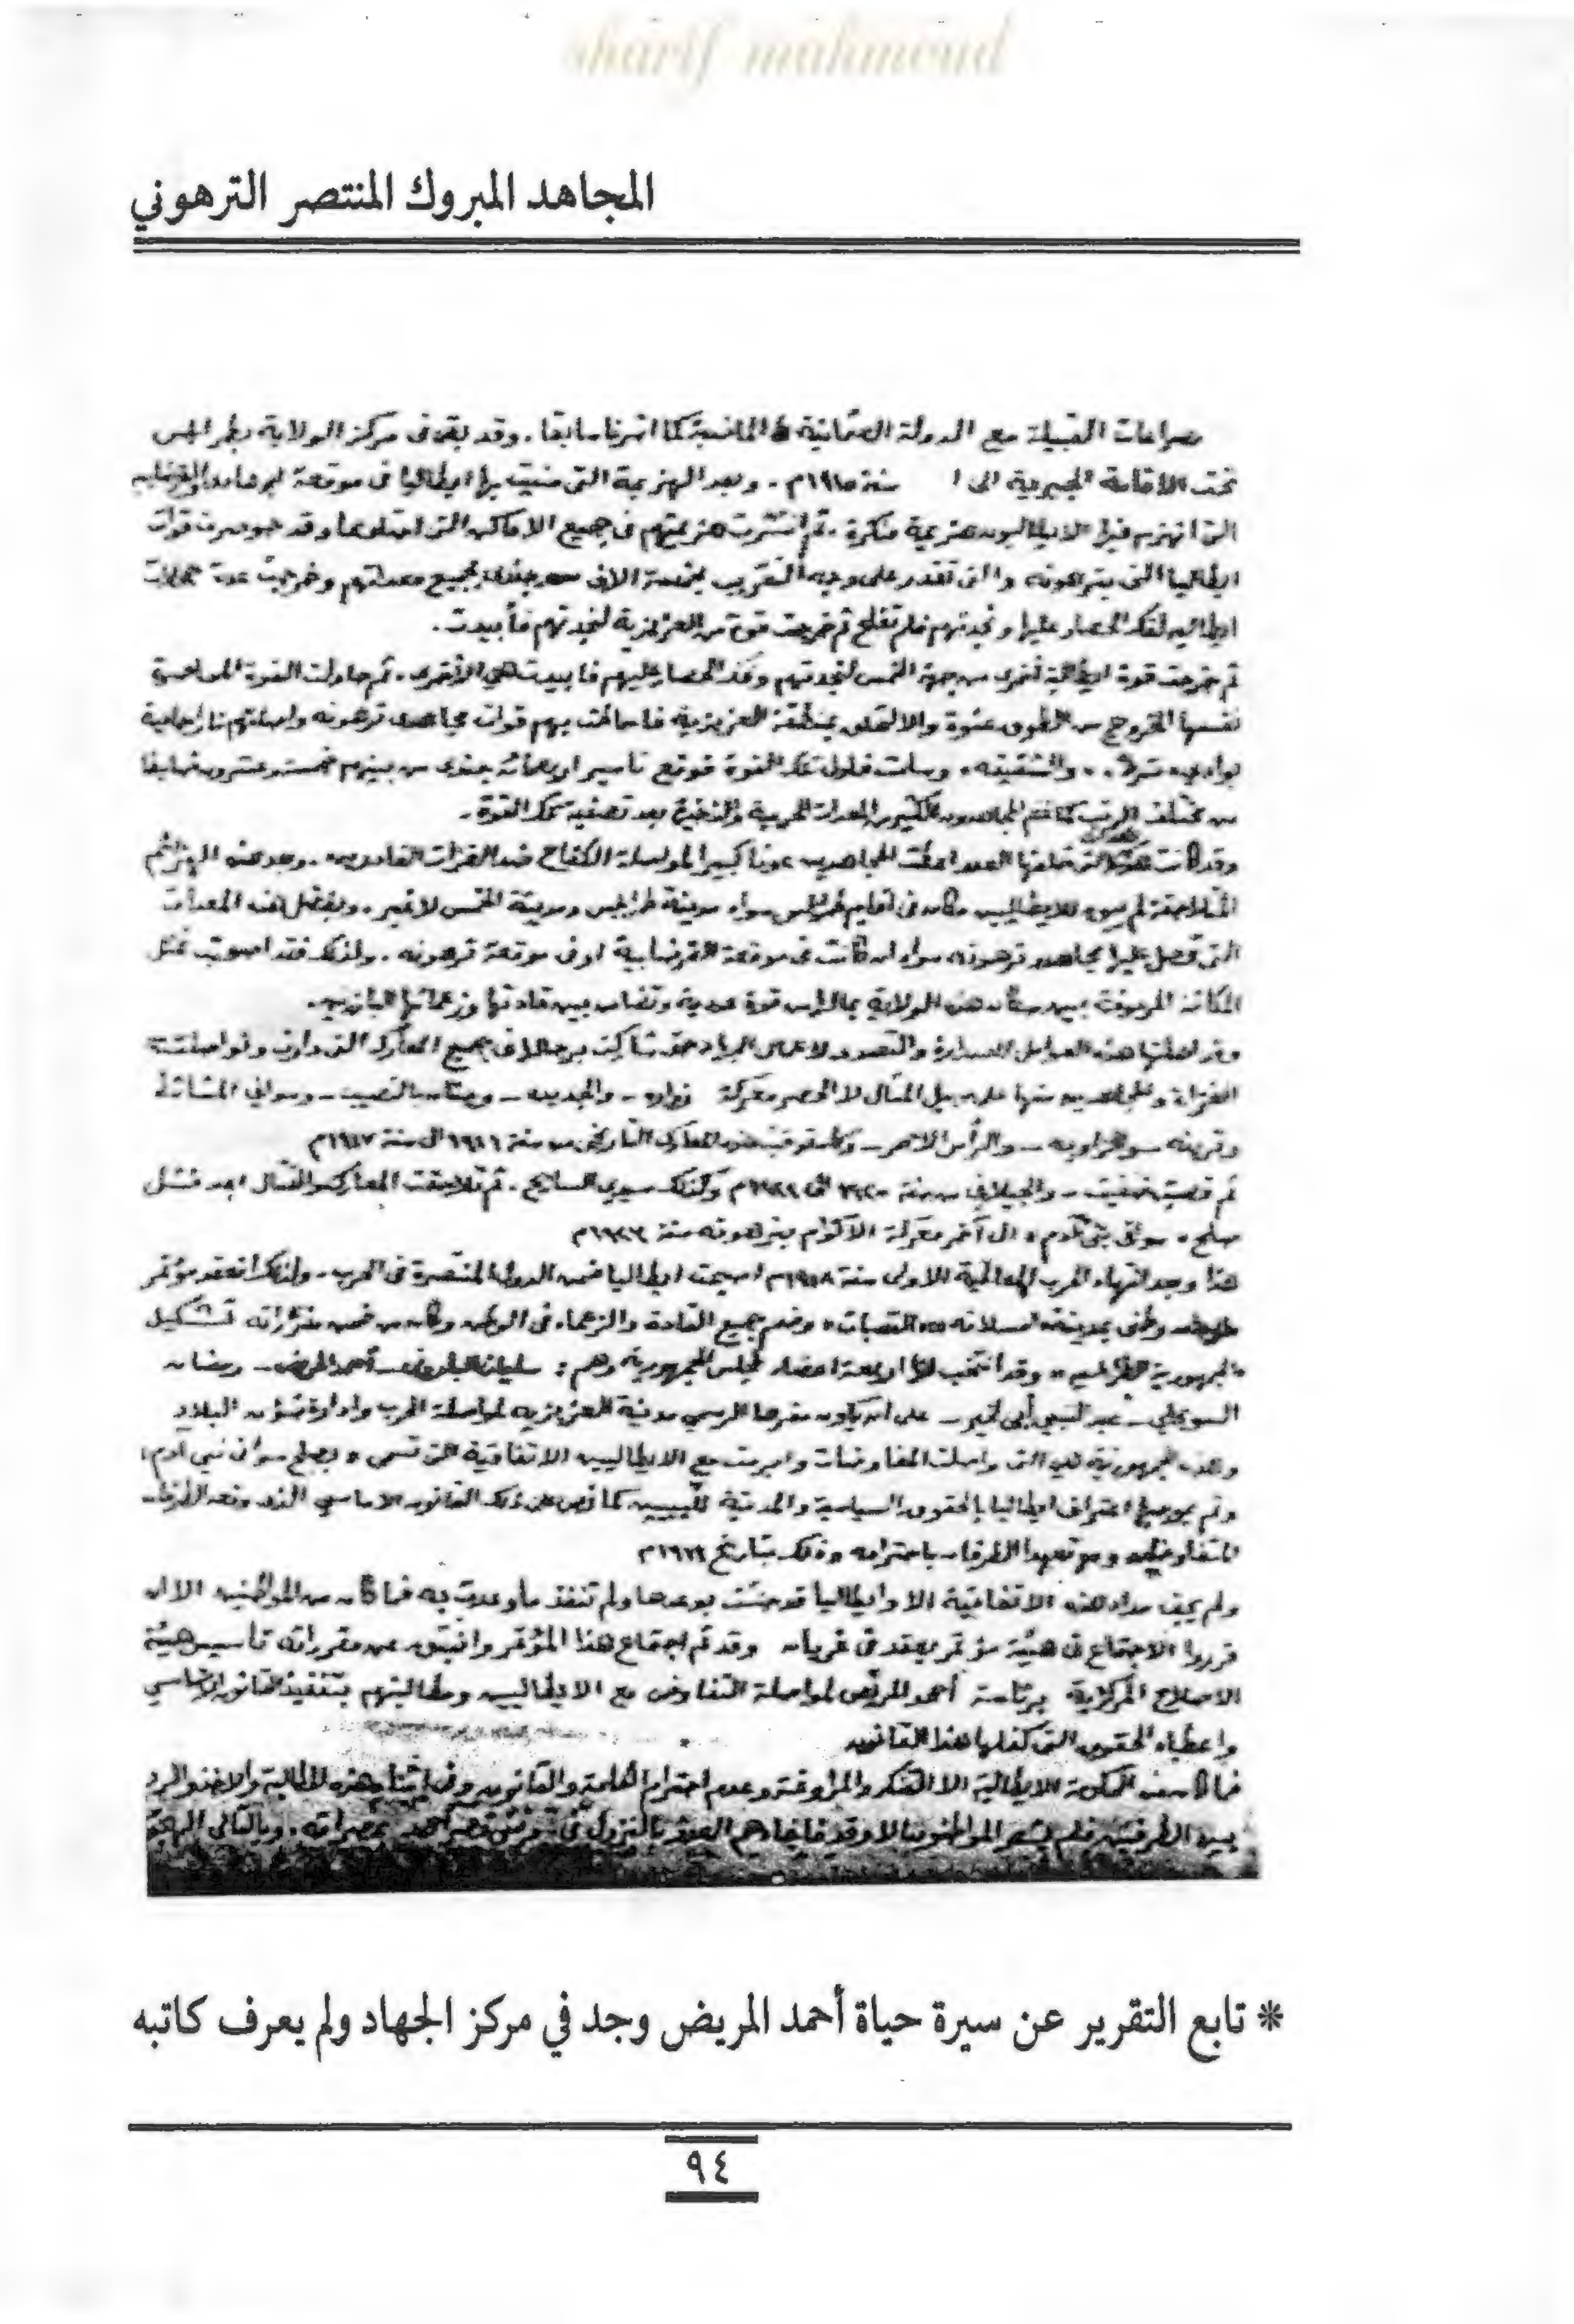 sharif mahmoud
المجاهد المبروك المنتصر الترهوني
صراعات القبيلة مع الدولة العثمانية كما اشرنا سابقا . وقد بقى فى مركز الولاية بطرابلس
تحت الاقامة الجبرية الى سنة ١٩١٥م . وبعد الهزيمة التى منيت بها ايطاليا فى موقعة
التى انهزم فيها الايطاليون هزيمة منكرة . ثم انتشرت هزيمتهم فى جميع الاماكن التى احتلوها وقد حوصرت قوات
ايطاليا التى بترهونه والتى تقدر على وجه التقريب بخمسة الاف جندى بجميع معداتهم وخرجت عدة حملات
ايطاليه لفك الحصار عليها ونجدتهم فلم تفلح ثم خرجت قوة من العزيزية لنجدتهم فأبيدت .
ثم خرجت قوة ايطالية اخرى من جهة الخمس لنجدتهم وفك الحصار عليهم فابيدت هي الأخرى . ثم حاولت القوة المحاصرة
نفسها الخروج من الطوق عنوة والالتحاق بمنطقة العزيزية فاحاطت بهم قوات مجاهدى ترهونه
والشقيقه وسلمت فلول تلك القوة فوقع تأسير اربعمائة جندى من بينهم خمسة وعشرون ضابطا
من مختلف الرتب كما غنم المجاهدون الكثير من المعدات الحربية والذخيرة بعد تصفية تلك القوة .
وقد كانت التى خلفها العدو اعطت المجاهدين عونا كبيرا لمواصلة الكفاح ضد الغزات الغادرين . وبعد هذه الهزائم
المتلاحقة لم يبق للايطاليين مكان فى اقليم طرابلس سواء مدينة طرابلس ومدينة الخمس لاغير . وبفضل هذه المعدات
التى تحصل عليها مجاهدى ترهونه سواء ان كانت فى موقعة القرضابية او فى موقعة ترهونه . ولذلك فقد اصبحت تمثل
المكانة المرموقة بين سكان هذه الولاية بمالها من قوة عددية وتضامن بين قادتها وزعمائها البارزين .
وقد اهلتها هذه العوامل للصدارة والتصدر لاعمال الجهاد حتى شاركت برجالها فى جميع المعارك التى دارت
الغزاة والمجاهدين منها على سبيل المثال لا الحصر معركة زواره - والجديده - وسواني المشاشطه
والزاويه - والرأس الاحمر - من سنة ١٩١٦ الى سنة ١٩١٧م
ثم تلاحقت المعارك والقتال بعد فشل
صلح سواني بني آدم الى آخر معركة بترهونه سنة
هذا وبعد انتهاء الحرب العالمية الاولى سنة ١٩١٨م اصبحت ايطاليا ضمن الدول المنتصرة فى الحرب . ولذلك انعقد مؤتمر
وطنى بمدينة مسلاته القصبات وضم جميع القادة والزعماء فى الوطن وكان من ضمن مقرراته تشكيل
الجمهورية الطرابلسيه وقد انتخب لها اربعة اعضاء لمجلس الجمهورية وهم : سليمان البارونى - أحمد المريض - رمضان
السويحلي - عبد النبي أبى الخير - على ان يكون مقرها الرسمي مدينة العزيزيه لمواصلة الحرب وادارة شؤن البلاد
وهذه الجمهورية هي التى واصلت المفاوضات وابرمت مع الايطاليين الاتفاقية التى تسمى بصلح سوانى بني آدم
وتم بموجبها اعتراف ايطاليا بالحقوق السياسية والمدنية لليبيين كما نص على ذلك القانون الاساسي الذى وقعه الطرفان
وتعهد الطرفان باحترامه وذلك بتاريخ ١٩١٩م
ولم يجف مداد هذه الاتفاقية الا وايطاليا قد حنثت بوعدها ولم تنفذ ما وعدت به فما كان من المواطنين الا ان
قرروا الاجتماع فى هيئة مؤتمر يعقد فى غريان وقد تم اجتماع هذا المؤتمر وانبثق عن مقرراته تأسيس هيئة
الاصلاح المركزية برئاسة أحمد المريض لمواصلة التفاوض مع الايطاليين ومطالبتهم بتنفيذ القانون الاساسي
واعطاء الحقوق التى كفلها هذا القانون
فما كان من الحكومة الايطالية الا التنكر والمراوغة وعدم احترام الكلمة والقانون وفى اثناء هذه المطالبة والاخذ والرد
بين الطرفين فلم يشعر المواطنون الا وقد فاجاهم العدو بالنزول فى قصر احمد بمصراته . وبالتالى الهجوم
* تابع التقرير عن سيرة حياة أحمد المريض وجد في مركز الجهاد ولم يعرف كاتبه
٩٤